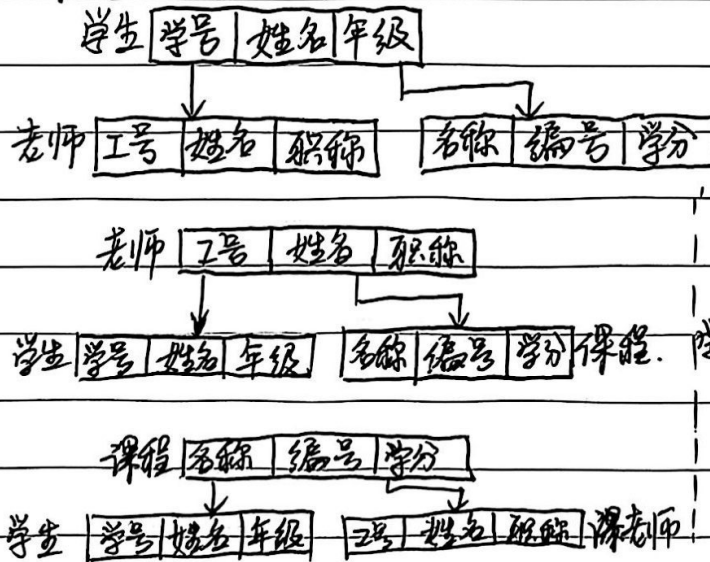 学生 学号 姓名 年级
老师 工号 姓名 职称 名称 编号 学分
老师 工号 姓名 职称
学生 学号 姓名 年级 名称 编号 学分 课程.
课程 名称 编号 学分
学生 学号 姓名 年级 工号 姓名 职称 老师